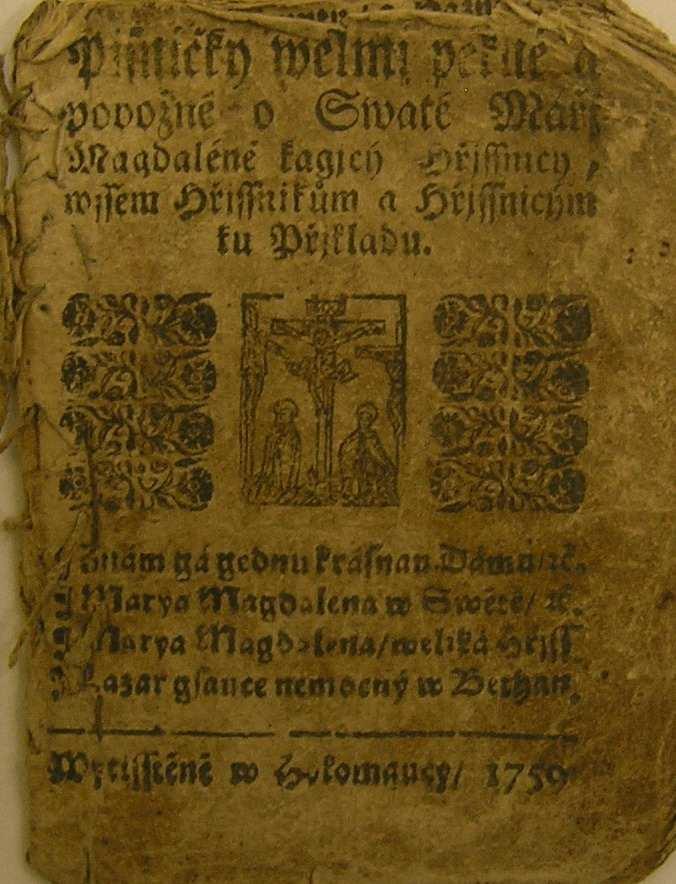 Pjsničky welmi pěkné a
pobožné o Swaté Máří
Magdaléně kagjcý Hřjssnicy,
wssem Hřjssnikům a Hřjssnicým
ku Přjkladu.
Znám gá gednu krásnau Dámu/ ꝛc.
Marya Magdalena w Swětě/ ꝛc.
Marya Magdalena/ weliká Hřjss
Lazar gsauce nemocný w Bethan.
Wytisstěné w Holomaucy/ 1759